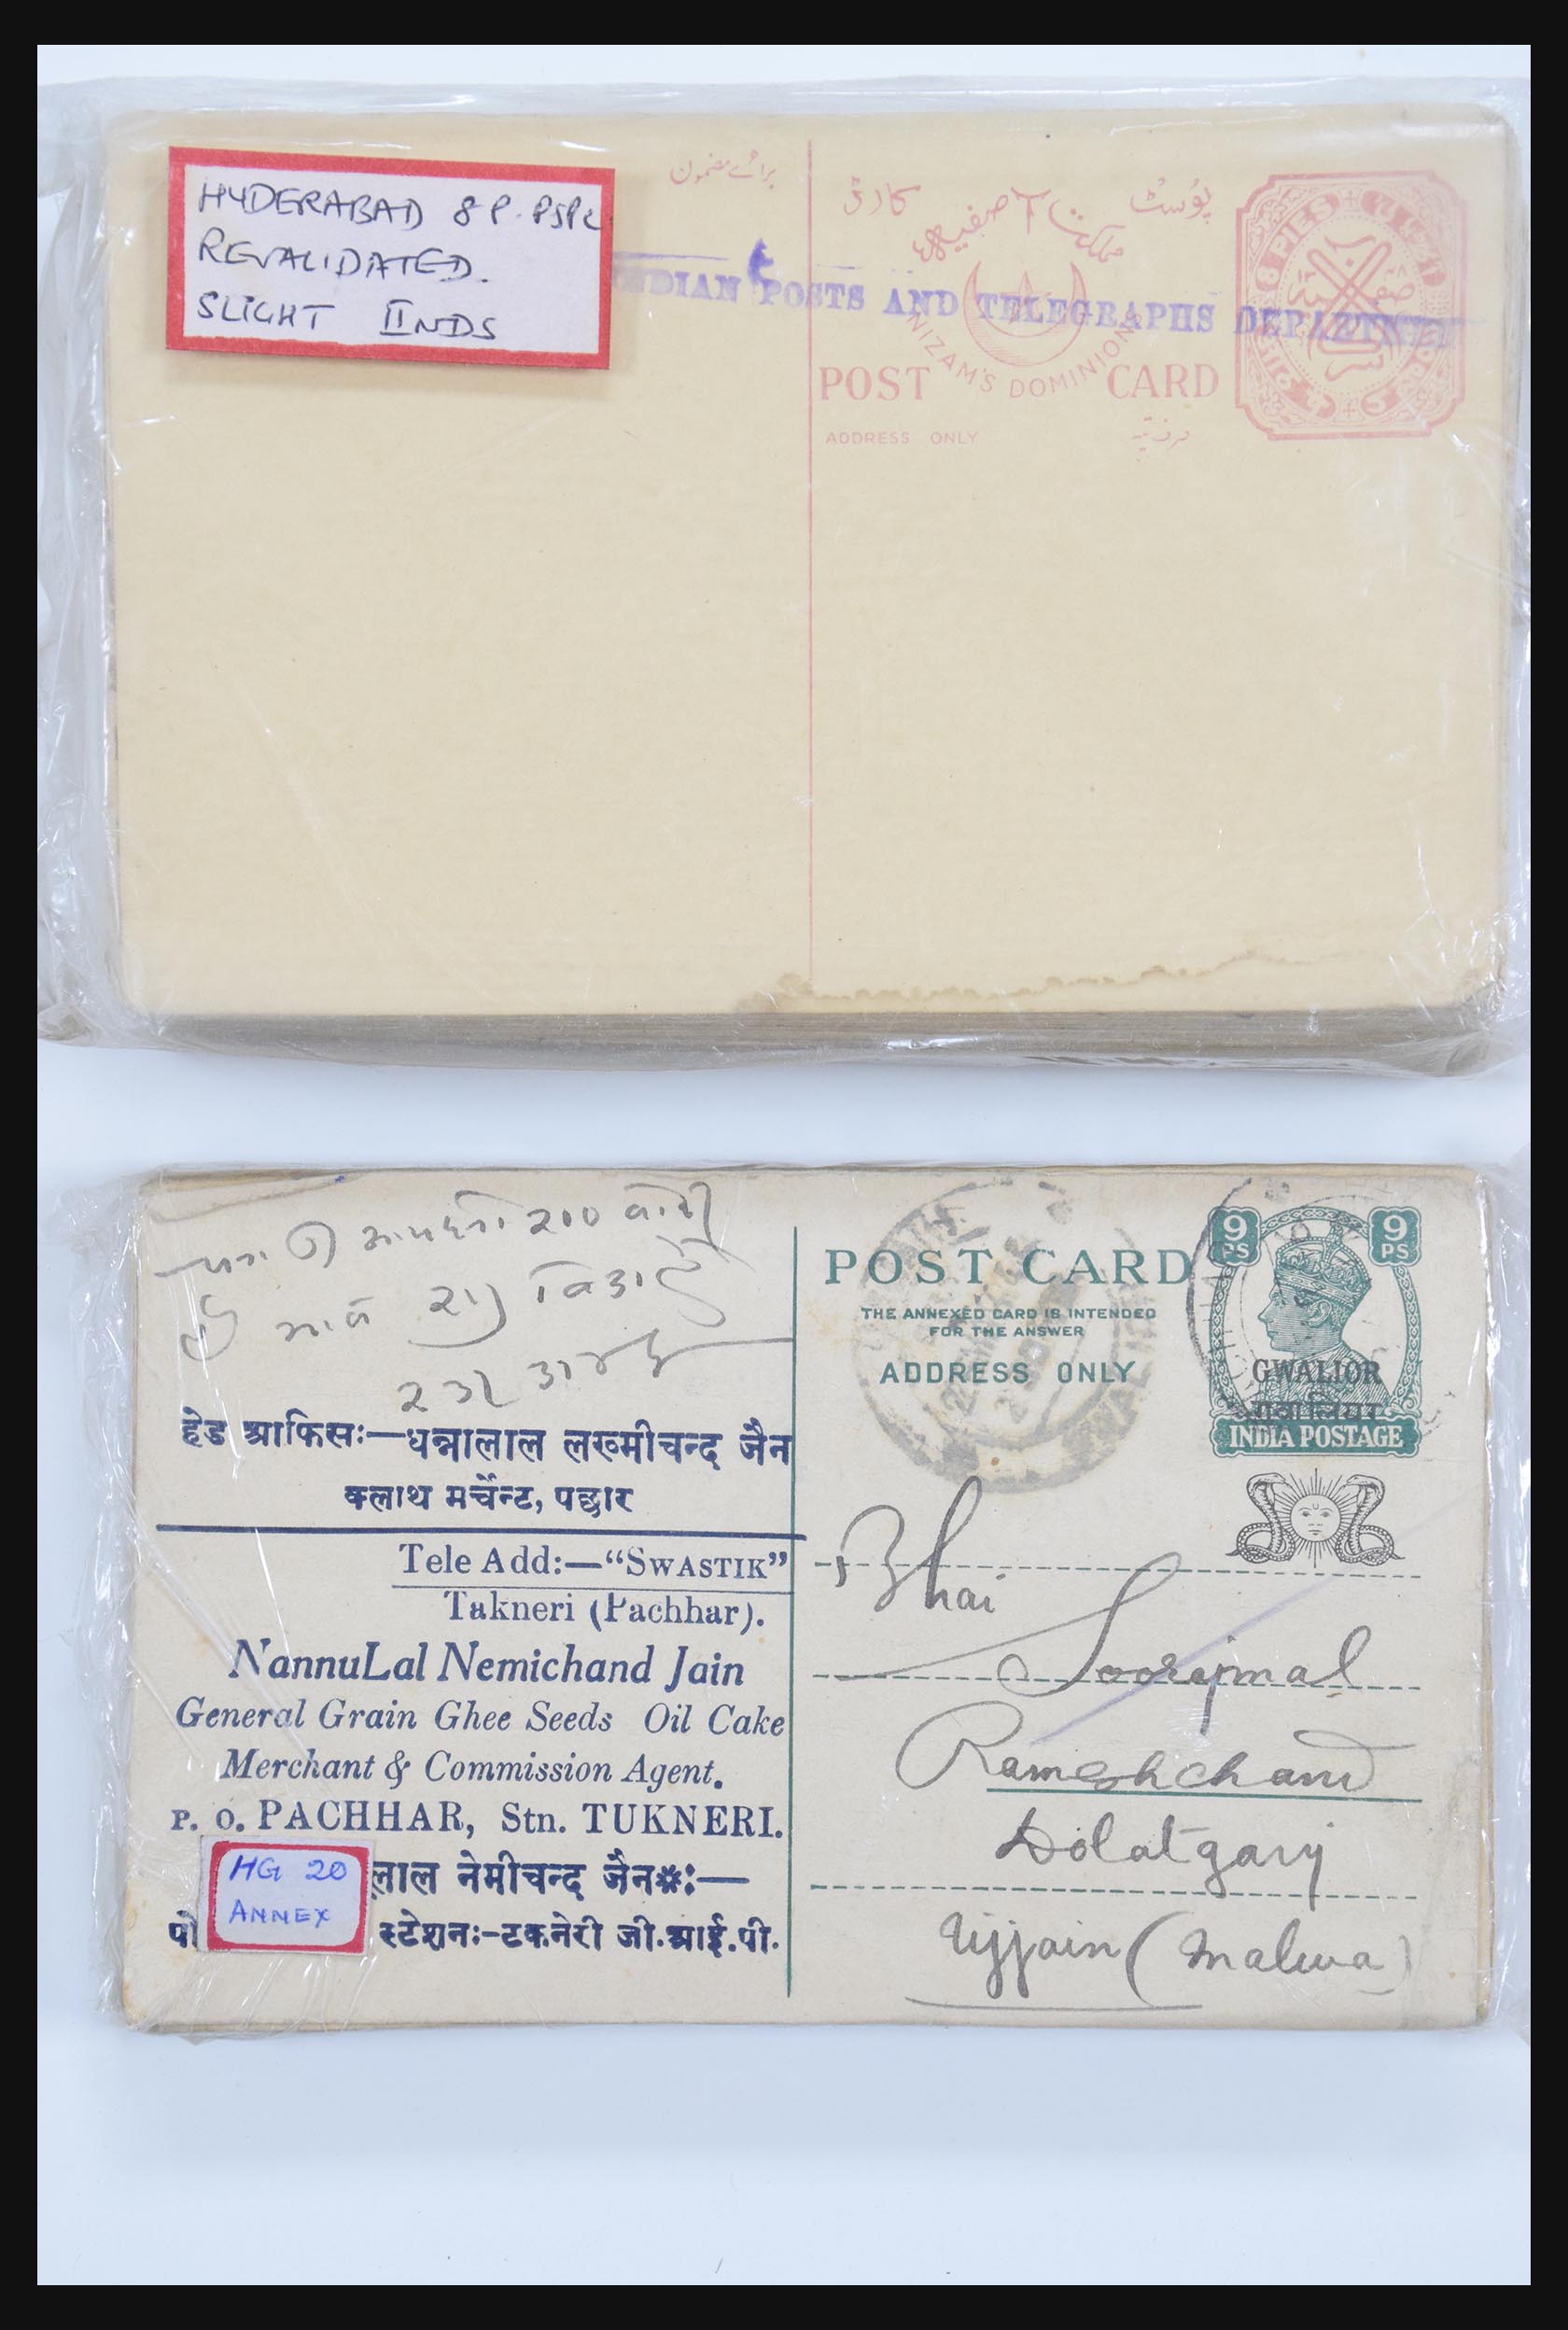 HYDERABAD 8 P. PSPC
REVALIDATED.
SLIGHT IINDS
برائے مضمون
پوسٹ کارڈ
مملکت آصفیہ
INDIAN POSTS AND TELEGRAPHS DEPARTMENT
NIZAM'S DOMINIONS
POST CARD
ADDRESS ONLY
8 PIES
२१०
हेड आफिसः—धन्नालाल लखमीचन्द जैन
क्लाथ मर्चेन्ट, पछार
Tele Add:—“SWASTIK”
Takneri (Pachhar).
NannuLal Nemichand Jain
General Grain Ghee Seeds Oil Cake
Merchant & Commission Agent.
P. O. PACHHAR, Stn. TUKNERI.
लाल नेमीचन्द जैन*:—
पो स्टेशनः-टकनेरी जी.आई.पी.
HG 20
ANNEX
POST CARD
THE ANNEXED CARD IS INTENDED
FOR THE ANSWER
ADDRESS ONLY
9 PS 9 PS
GWALIOR
ग्वालियर
INDIA POSTAGE
Bhai
Soorajmal
Rameshchand
Dolatganj
Ujjain (Malwa)